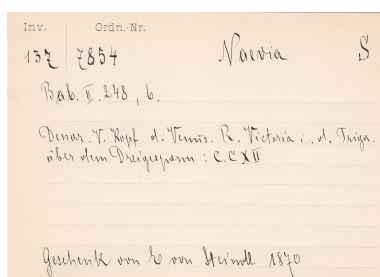 Inv. Ordn.-Nr.
137 7854 Naevia S
Bab. II. 248, 6.
Denar. V. Kopf d. Venus. R. Victoria i. d. Triga.
über dem Dreigespann : C.CXII
Geschenk von E von 1870